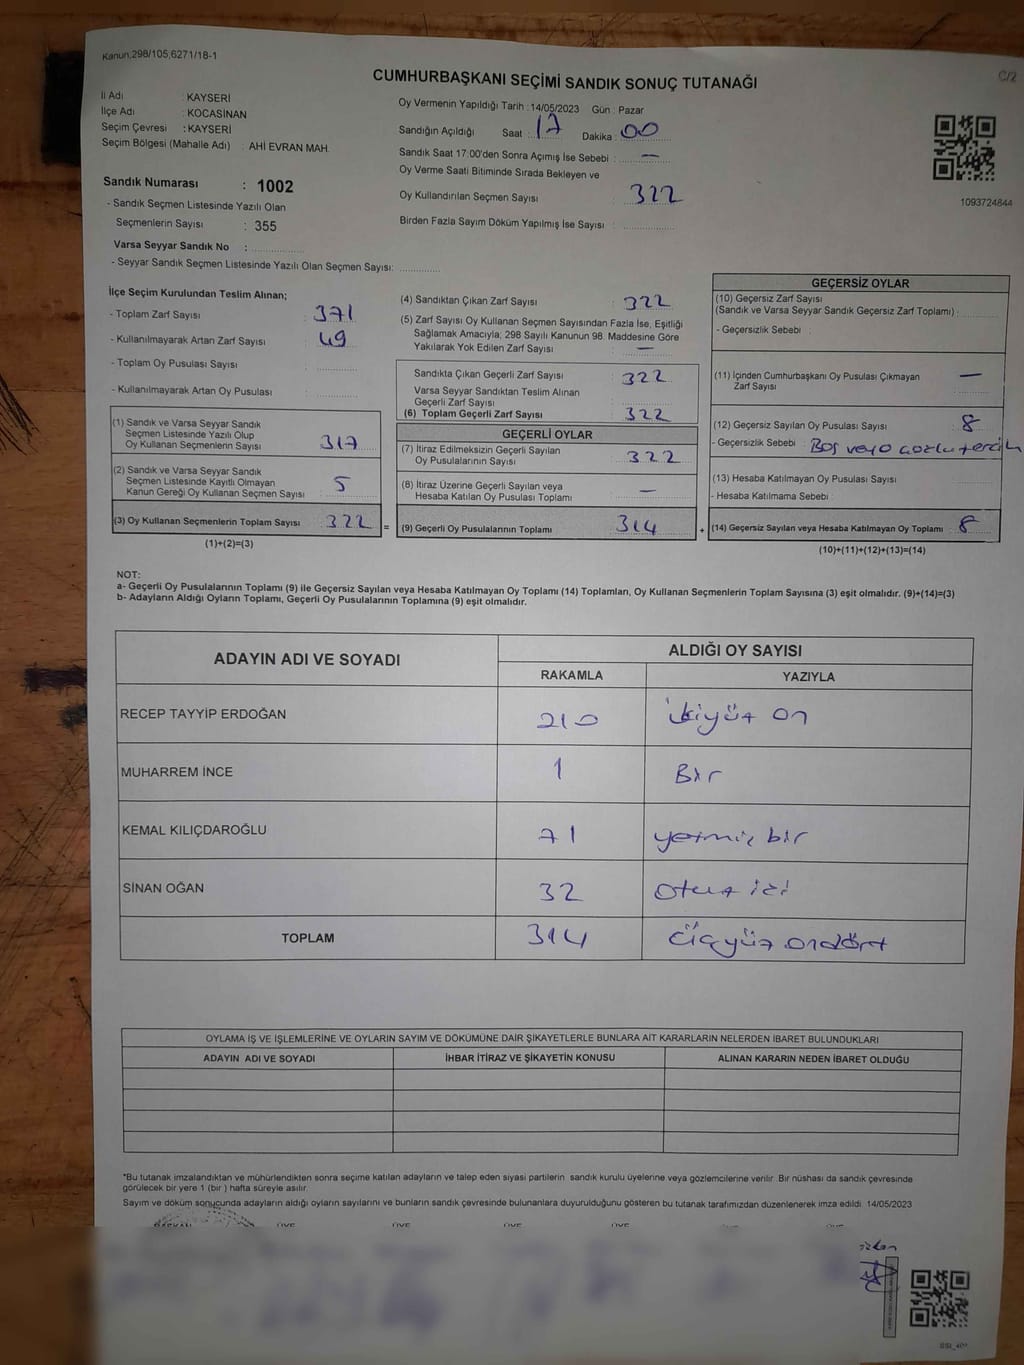 Kanun,298/105,6271/18-1
C/2
CUMHURBAŞKANI SEÇİMİ SANDIK SONUÇ TUTANAĞI
İl Adı : KAYSERİ
İlçe Adı : KOCASİNAN
Seçim Çevresi : KAYSERİ
Seçim Bölgesi (Mahalle Adı) : AHİ EVRAN MAH.
Sandık Numarası : 1002
- Sandık Seçmen Listesinde Yazılı Olan
Seçmenlerin Sayısı : 355
Varsa Seyyar Sandık No :
- Seyyar Sandık Seçmen Listesinde Yazılı Olan Seçmen Sayısı:
Oy Vermenin Yapıldığı Tarih : 14/05/2023 Gün : Pazar
Sandığın Açıldığı Saat : 17 Dakika : 00
Sandık Saat 17:00'den Sonra Açımış İse Sebebi : —
Oy Verme Saati Bitiminde Sırada Bekleyen ve
Oy Kullandırılan Seçmen Sayısı : 322
Birden Fazla Sayım Döküm Yapılmış İse Sayısı :
1093724844
İlçe Seçim Kurulundan Teslim Alınan;
- Toplam Zarf Sayısı : 371
- Kullanılmayarak Artan Zarf Sayısı : 49
- Toplam Oy Pusulası Sayısı :
- Kullanılmayarak Artan Oy Pusulası :
(1) Sandık ve Varsa Seyyar Sandık
Seçmen Listesinde Yazılı Olup
Oy Kullanan Seçmenlerin Sayısı : 317
(2) Sandık ve Varsa Seyyar Sandık
Seçmen Listesinde Kayıtlı Olmayan
Kanun Gereği Oy Kullanan Seçmen Sayısı : 5
(3) Oy Kullanan Seçmenlerin Toplam Sayısı : 322
(1)+(2)=(3)
=
(4) Sandıktan Çıkan Zarf Sayısı : 322
(5) Zarf Sayısı Oy Kullanan Seçmen Sayısından Fazla İse, Eşitliği
Sağlamak Amacıyla; 298 Sayılı Kanunun 98. Maddesine Göre
Yakılarak Yok Edilen Zarf Sayısı : —
Sandıkta Çıkan Geçerli Zarf Sayısı : 322
Varsa Seyyar Sandıktan Teslim Alınan
Geçerli Zarf Sayısı :
(6) Toplam Geçerli Zarf Sayısı : 322
GEÇERLİ OYLAR
(7) İtiraz Edilmeksizin Geçerli Sayılan
Oy Pusulalarının Sayısı : 322
(8) İtiraz Üzerine Geçerli Sayılan veya
Hesaba Katılan Oy Pusulası Toplamı : —
(9) Geçerli Oy Pusulalarının Toplamı : 314
+
GEÇERSİZ OYLAR
(10) Geçersiz Zarf Sayısı
(Sandık ve Varsa Seyyar Sandık Geçersiz Zarf Toplamı) :
- Geçersizlik Sebebi :
(11) İçinden Cumhurbaşkanı Oy Pusulası Çıkmayan
Zarf Sayısı : —
(12) Geçersiz Sayılan Oy Pusulası Sayısı : 8
- Geçersizlik Sebebi : Boş veya
(13) Hesaba Katılmayan Oy Pusulası Sayısı :
- Hesaba Katılmama Sebebi :
(14) Geçersiz Sayılan veya Hesaba Katılmayan Oy Toplamı : 8
(10)+(11)+(12)+(13)=(14)
NOT:
a- Geçerli Oy Pusulalarının Toplamı (9) ile Geçersiz Sayılan veya Hesaba Katılmayan Oy Toplamı (14) Toplamları, Oy Kullanan Seçmenlerin Toplam Sayısına (3) eşit olmalıdır. (9)+(14)=(3)
b- Adayların Aldığı Oyların Toplamı, Geçerli Oy Pusulalarının Toplamına (9) eşit olmalıdır.
ADAYIN ADI VE SOYADI ALDIĞI OY SAYISI
RAKAMLA YAZIYLA
RECEP TAYYİP ERDOĞAN 210 ikiyüz on
MUHARREM İNCE 1 Bir
KEMAL KILIÇDAROĞLU 71 yetmiş bir
SİNAN OĞAN 32 otuz iki
TOPLAM 314 üçyüz ondört
OYLAMA İŞ VE İŞLEMLERİNE VE OYLARIN SAYIM VE DÖKÜMÜNE DAİR ŞİKAYETLERLE BUNLARA AİT KARARLARIN NELERDEN İBARET BULUNDUKLARI
ADAYIN ADI VE SOYADI İHBAR İTİRAZ VE ŞİKAYETİN KONUSU ALINAN KARARIN NEDEN İBARET OLDUĞU
*Bu tutanak imzalandıktan ve mühürlendikten sonra seçime katılan adayların ve talep eden siyasi partilerin sandık kurulu üyelerine veya gözlemcilerine verilir. Bir nüshası da sandık çevresinde
görülecek bir yere 1 (bir ) hafta süreyle asılır.
Sayım ve döküm sonucunda adayların aldığı oyların sayılarını ve bunların sandık çevresinde bulunanlara duyurulduğunu gösteren bu tutanak tarafımızdan düzenlenerek imza edildi. 14/05/2023
BAŞKAN ÜYE ÜYE ÜYE ÜYE ÜYE ÜYE